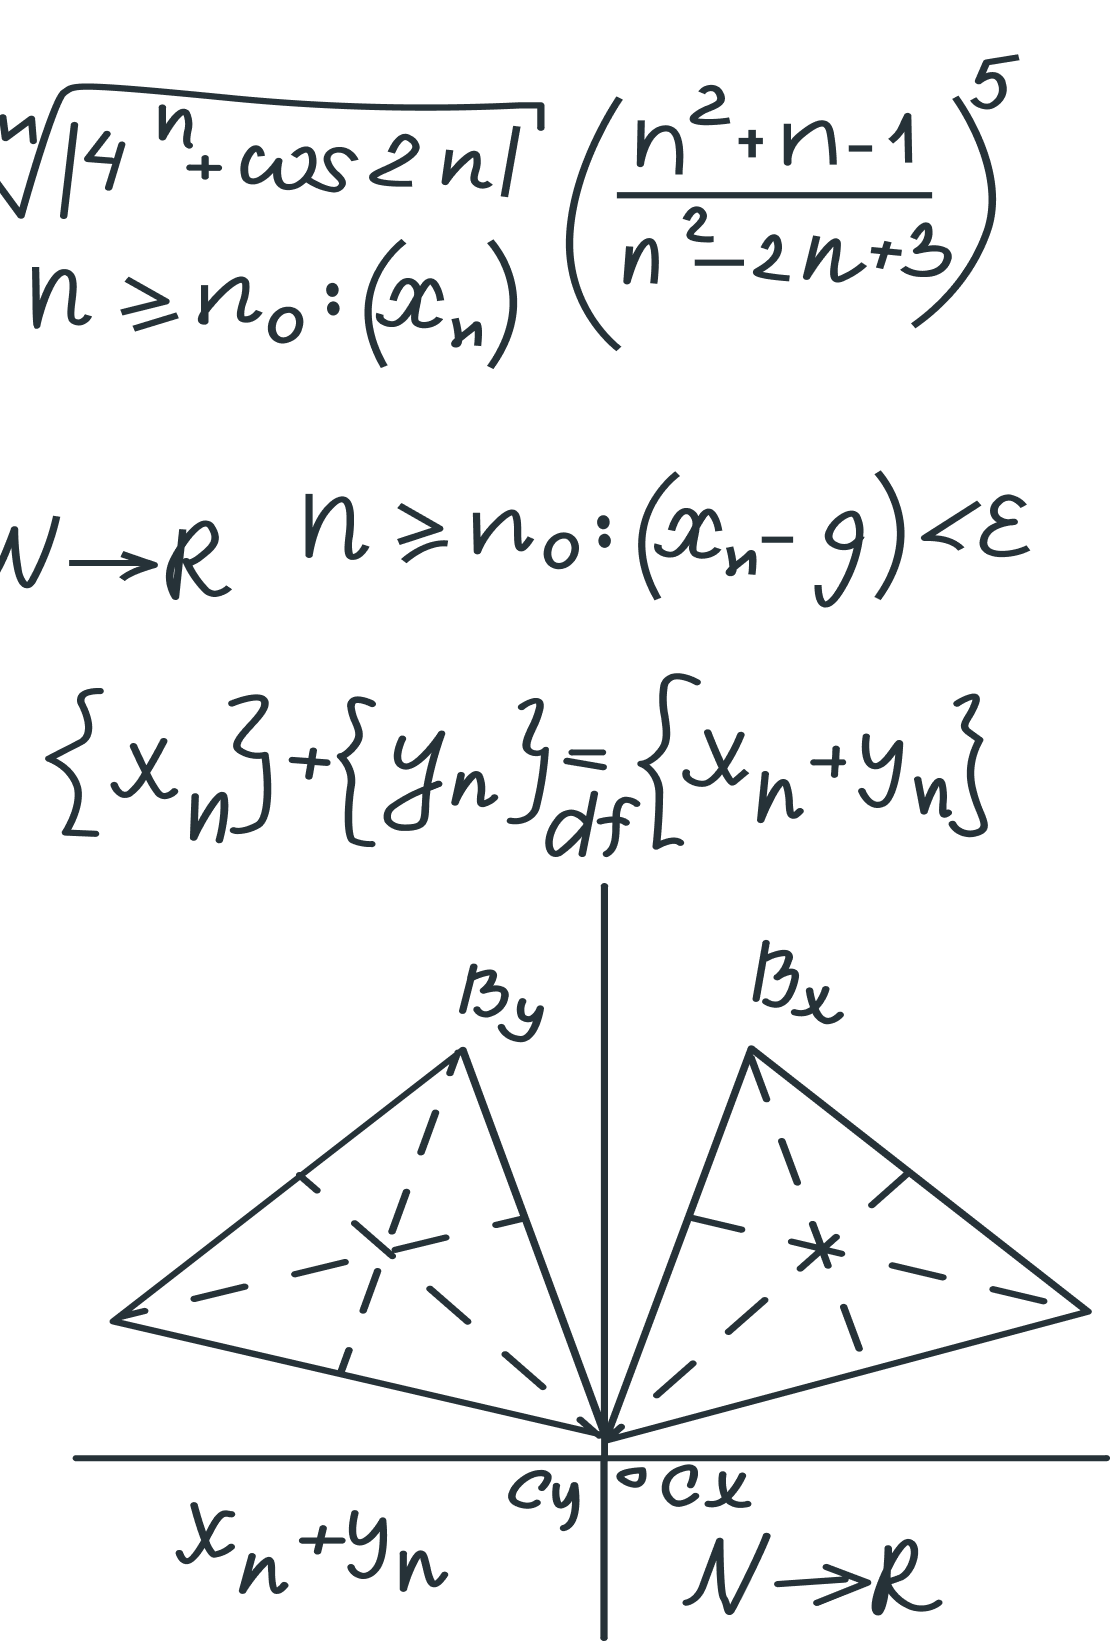 ⁿ√|4ⁿ + cos 2n| ((n² + n - 1)/(n² - 2n + 3))⁵
n ≥ n₀ : (xₙ)
N → R n ≥ n₀ : (xₙ - g) < ε
{xₙ} + {yₙ} =df {xₙ + yₙ}
By Bx
Cy Cx
xₙ + yₙ N → R